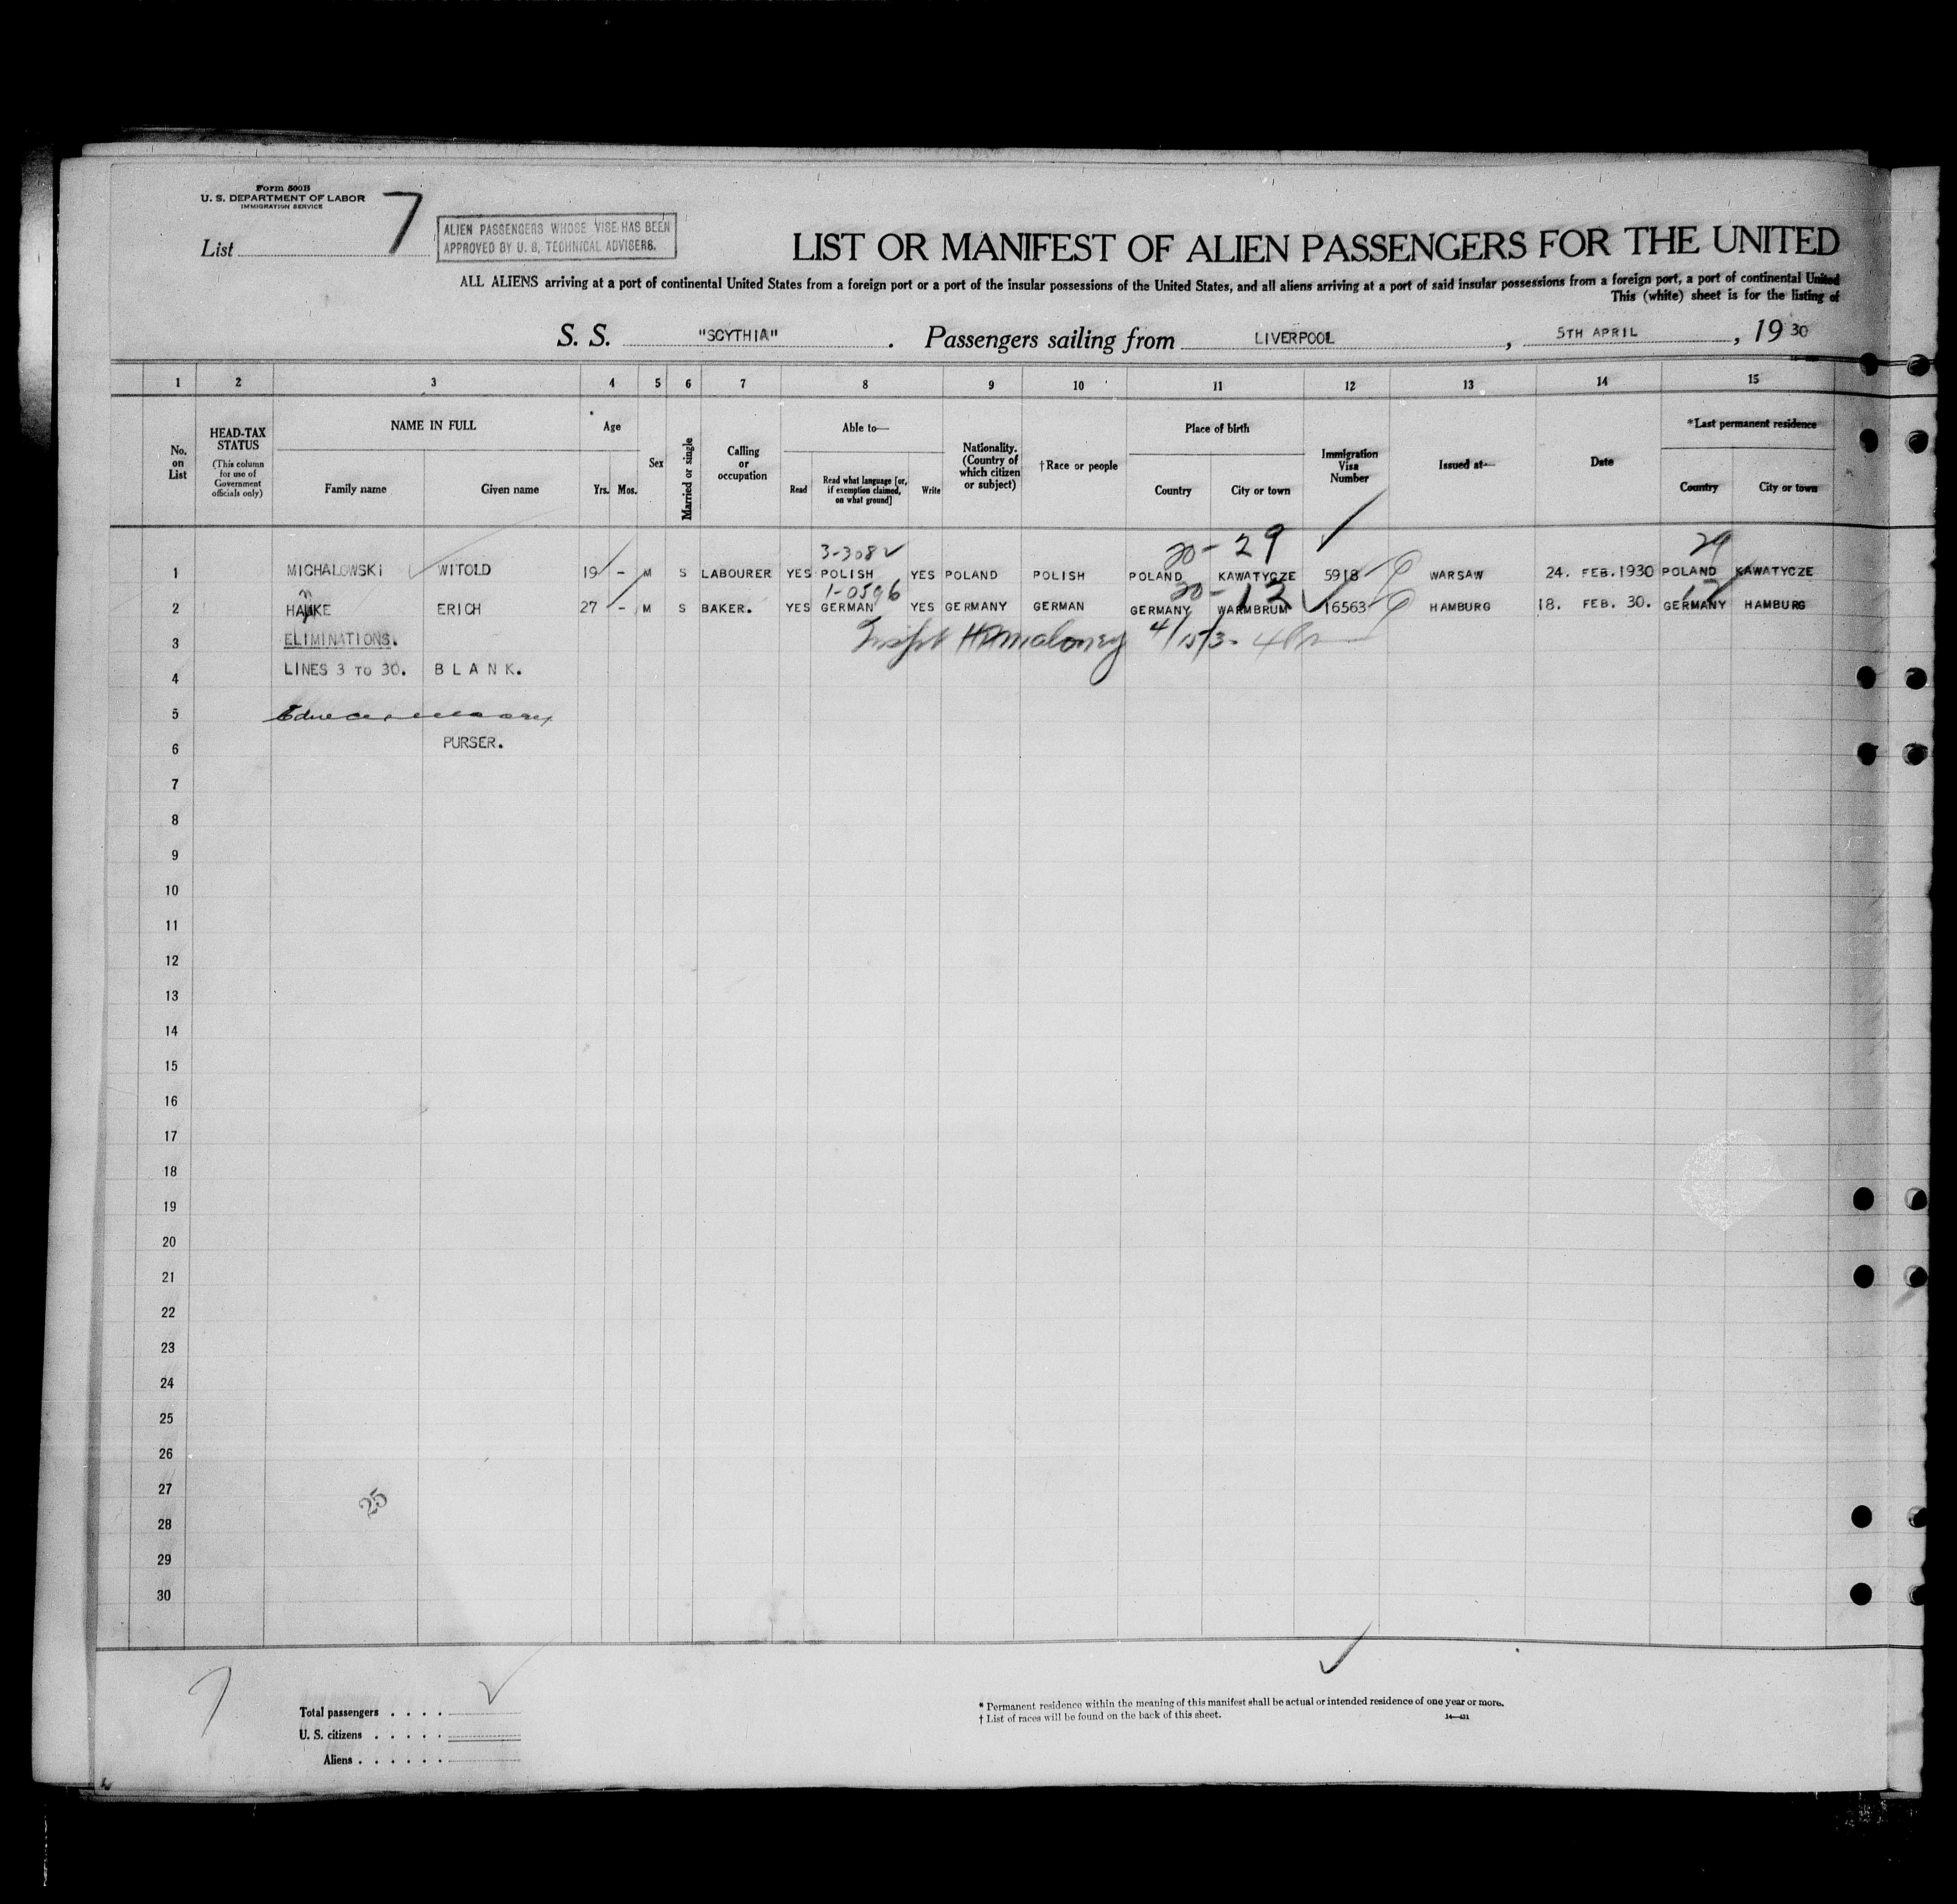 Form 500B
U. S. DEPARTMENT OF LABOR
IMMIGRATION SERVICE
List 7
ALIEN PASSENGERS WHOSE VISE HAS BEEN
APPROVED BY U. S. TECHNICAL ADVISERS.
LIST OR MANIFEST OF ALIEN PASSENGERS FOR THE UNITED
ALL ALIENS arriving at a port of continental United States from a foreign port or a port of the insular possessions of the United States, and all aliens arriving at a port of said insular possessions from a foreign port, a port of continental United
This (white) sheet is for the listing of
S. S. "SCYTHIA". Passengers sailing from LIVERPOOL, 5TH APRIL, 19 30
1 2 3 4 5 6 7 8 9 10 11 12 13 14 15
No. on List
HEAD-TAX STATUS
(This column for use of Government officials only)
NAME IN FULL
Family name Given name
Age
Yrs. Mos.
Sex
Married or single
Calling or occupation
Able to—
Read
Read what language [or, if exemption claimed, on what ground]
Write
Nationality. (Country of which citizen or subject)
†Race or people
Place of birth
Country City or town
Immigration Visa Number
Issued at—
Date
*Last permanent residence
Country City or town
3-308 20-29 29
1 MICHALOWSKI WITOLD 19 - M S LABOURER YES POLISH YES POLAND POLISH POLAND KAWATYCZE 5918 WARSAW 24. FEB. 1930 POLAND KAWATYCZE
1-0596 20-12 12
2 HAUKE ERICH 27 - M S BAKER. YES GERMAN YES GERMANY GERMAN GERMANY WARMBRUM 16563 HAMBURG 18. FEB. 30. GERMANY HAMBURG
3 ELIMINATIONS.
LINES 3 TO 30. BLANK.
4
5
PURSER.
6
7
8
9
10
11
12
13
14
15
16
17
18
19
20
21
22
23
24
25
26
27
25
28
29
30
Total passengers . . . .
U. S. citizens . . . . .
Aliens . . . . . .
* Permanent residence within the meaning of this manifest shall be actual or intended residence of one year or more.
† List of races will be found on the back of this sheet.
14—421